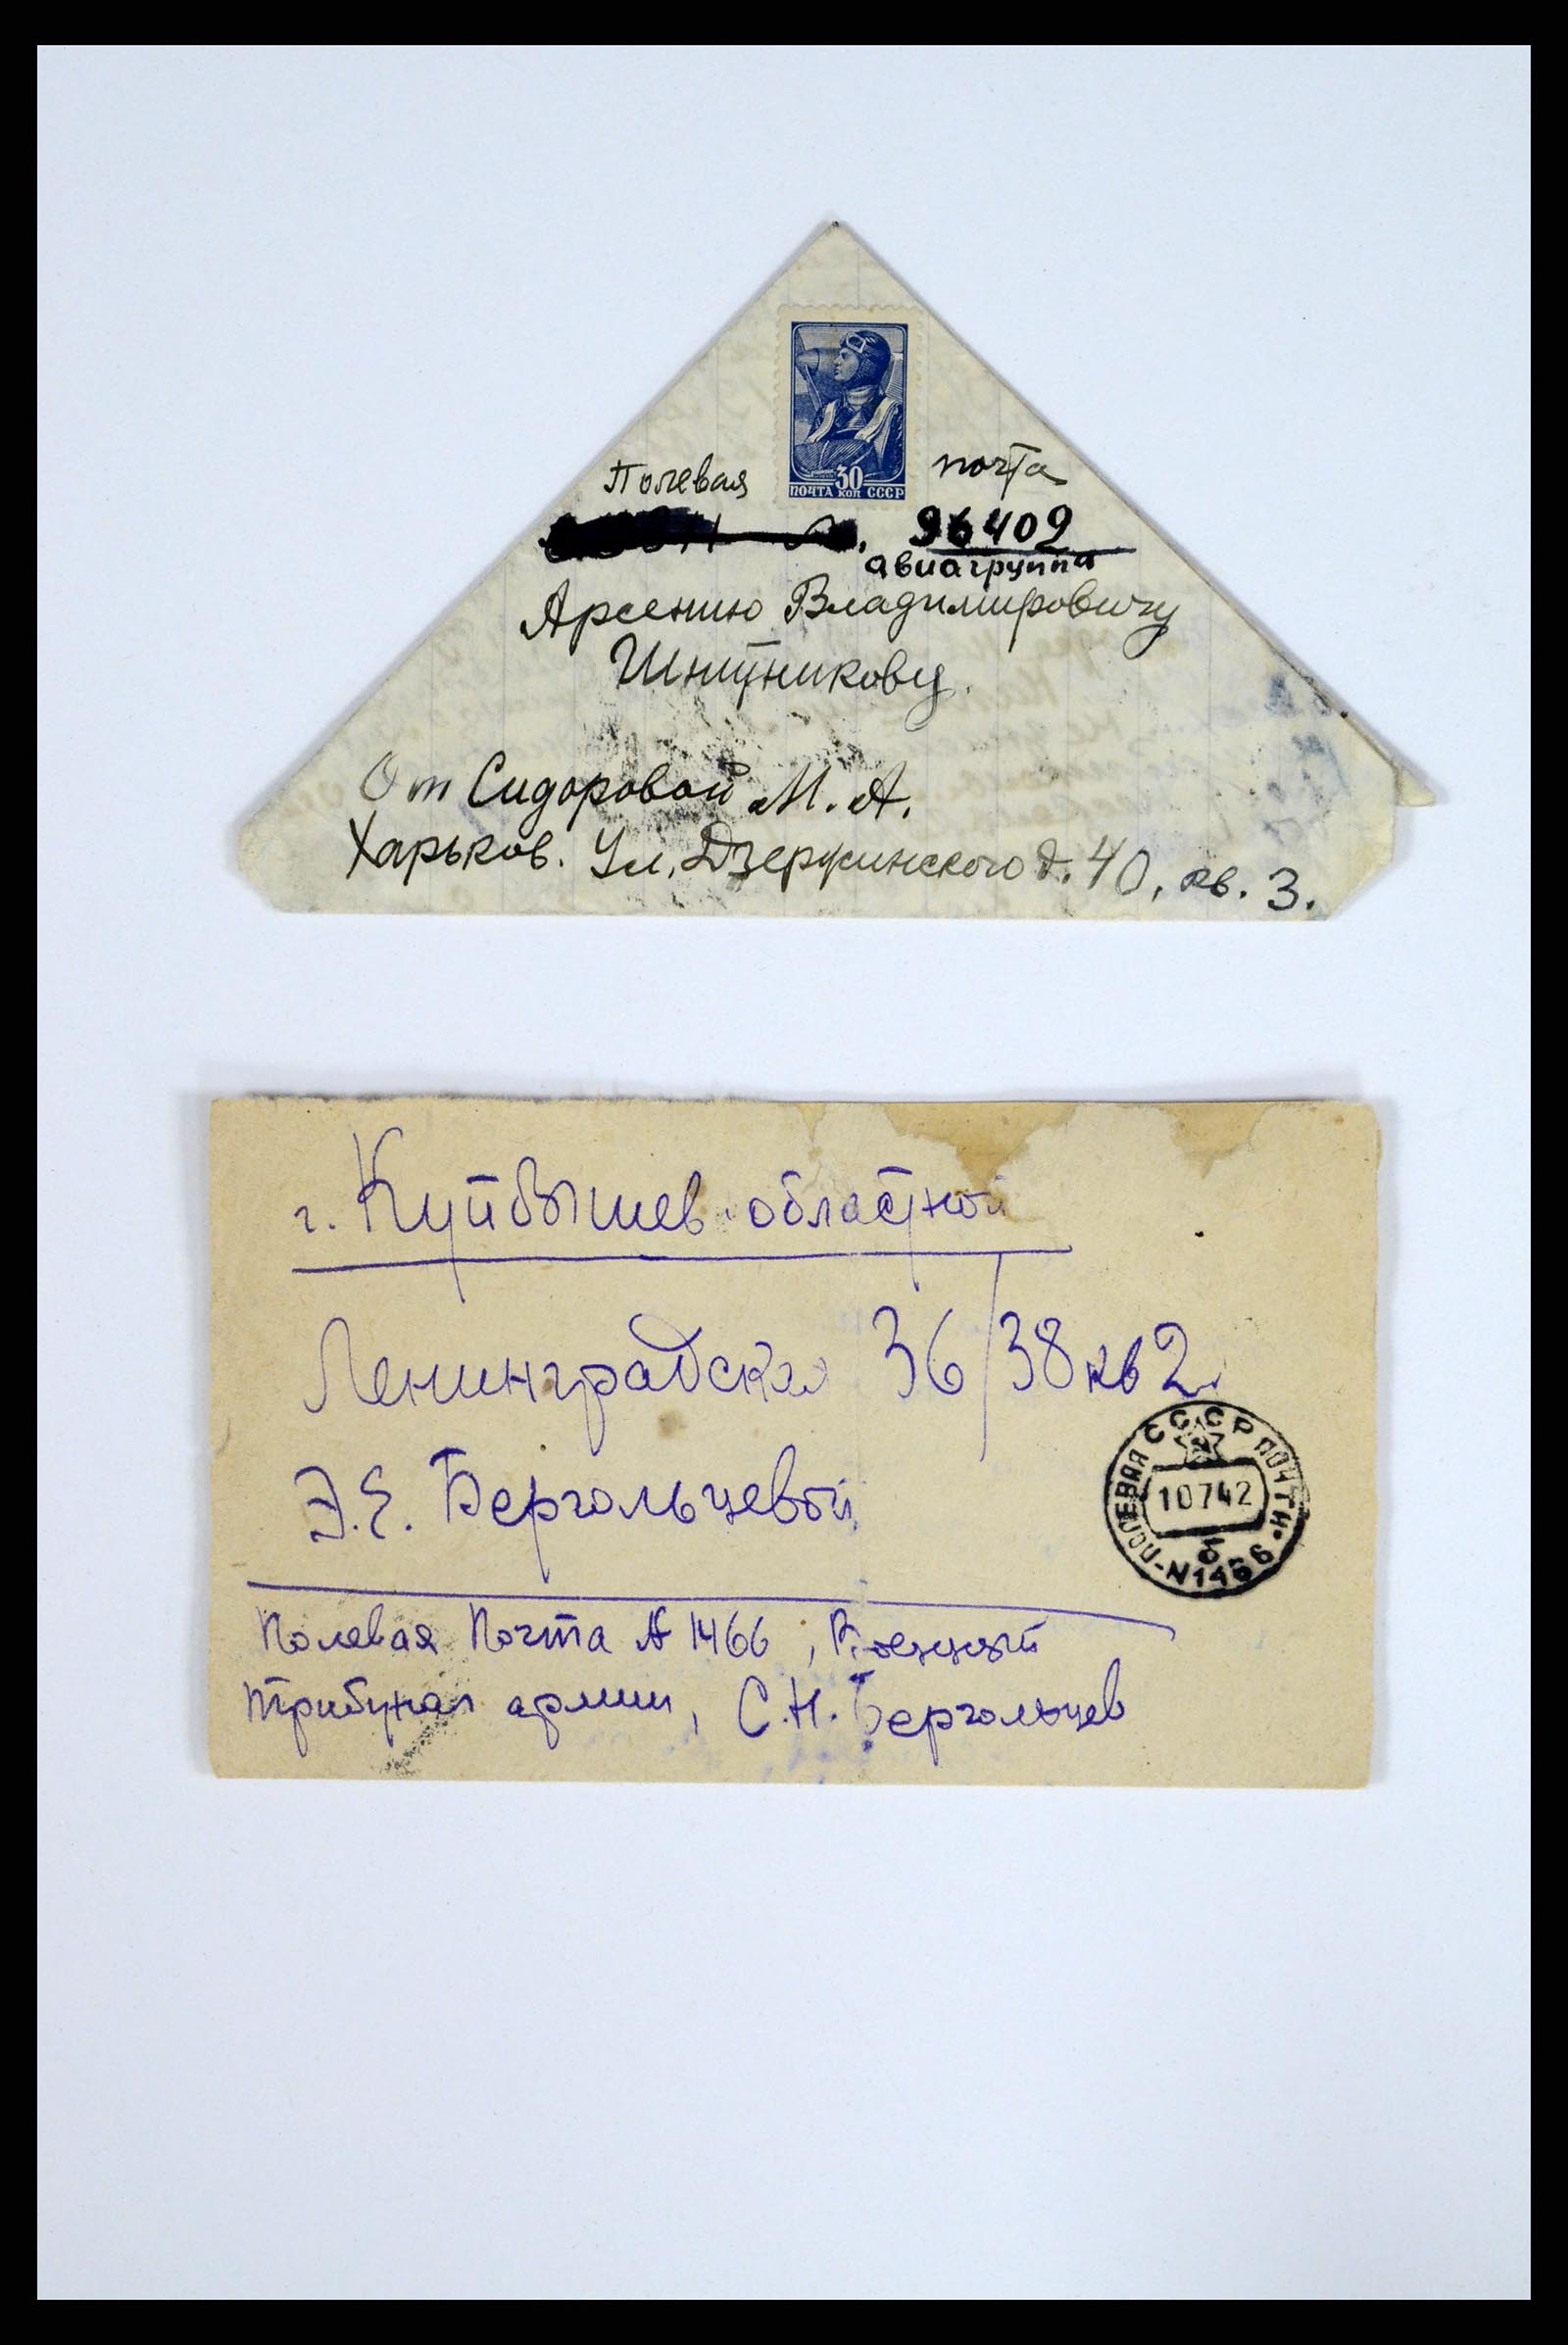 30
ПОЧТА КОП СССР
Полевая почта
96402
авиагруппа
Арсению Владимировичу
Шнитникову.
От Сидоровой М. А.
Харьков. Ул. Дзержинского д. 40, кв. 3.
г. Куйбышев областной
Ленинградская 36/38 кв 2.
Э.Е. Бергольцевой
СССР
ПОЛЕВАЯ ПОЧТА
10742
б
N1466
Полевая Почта № 1466, Военный
трибунал армии, С.Н. Бергольцев